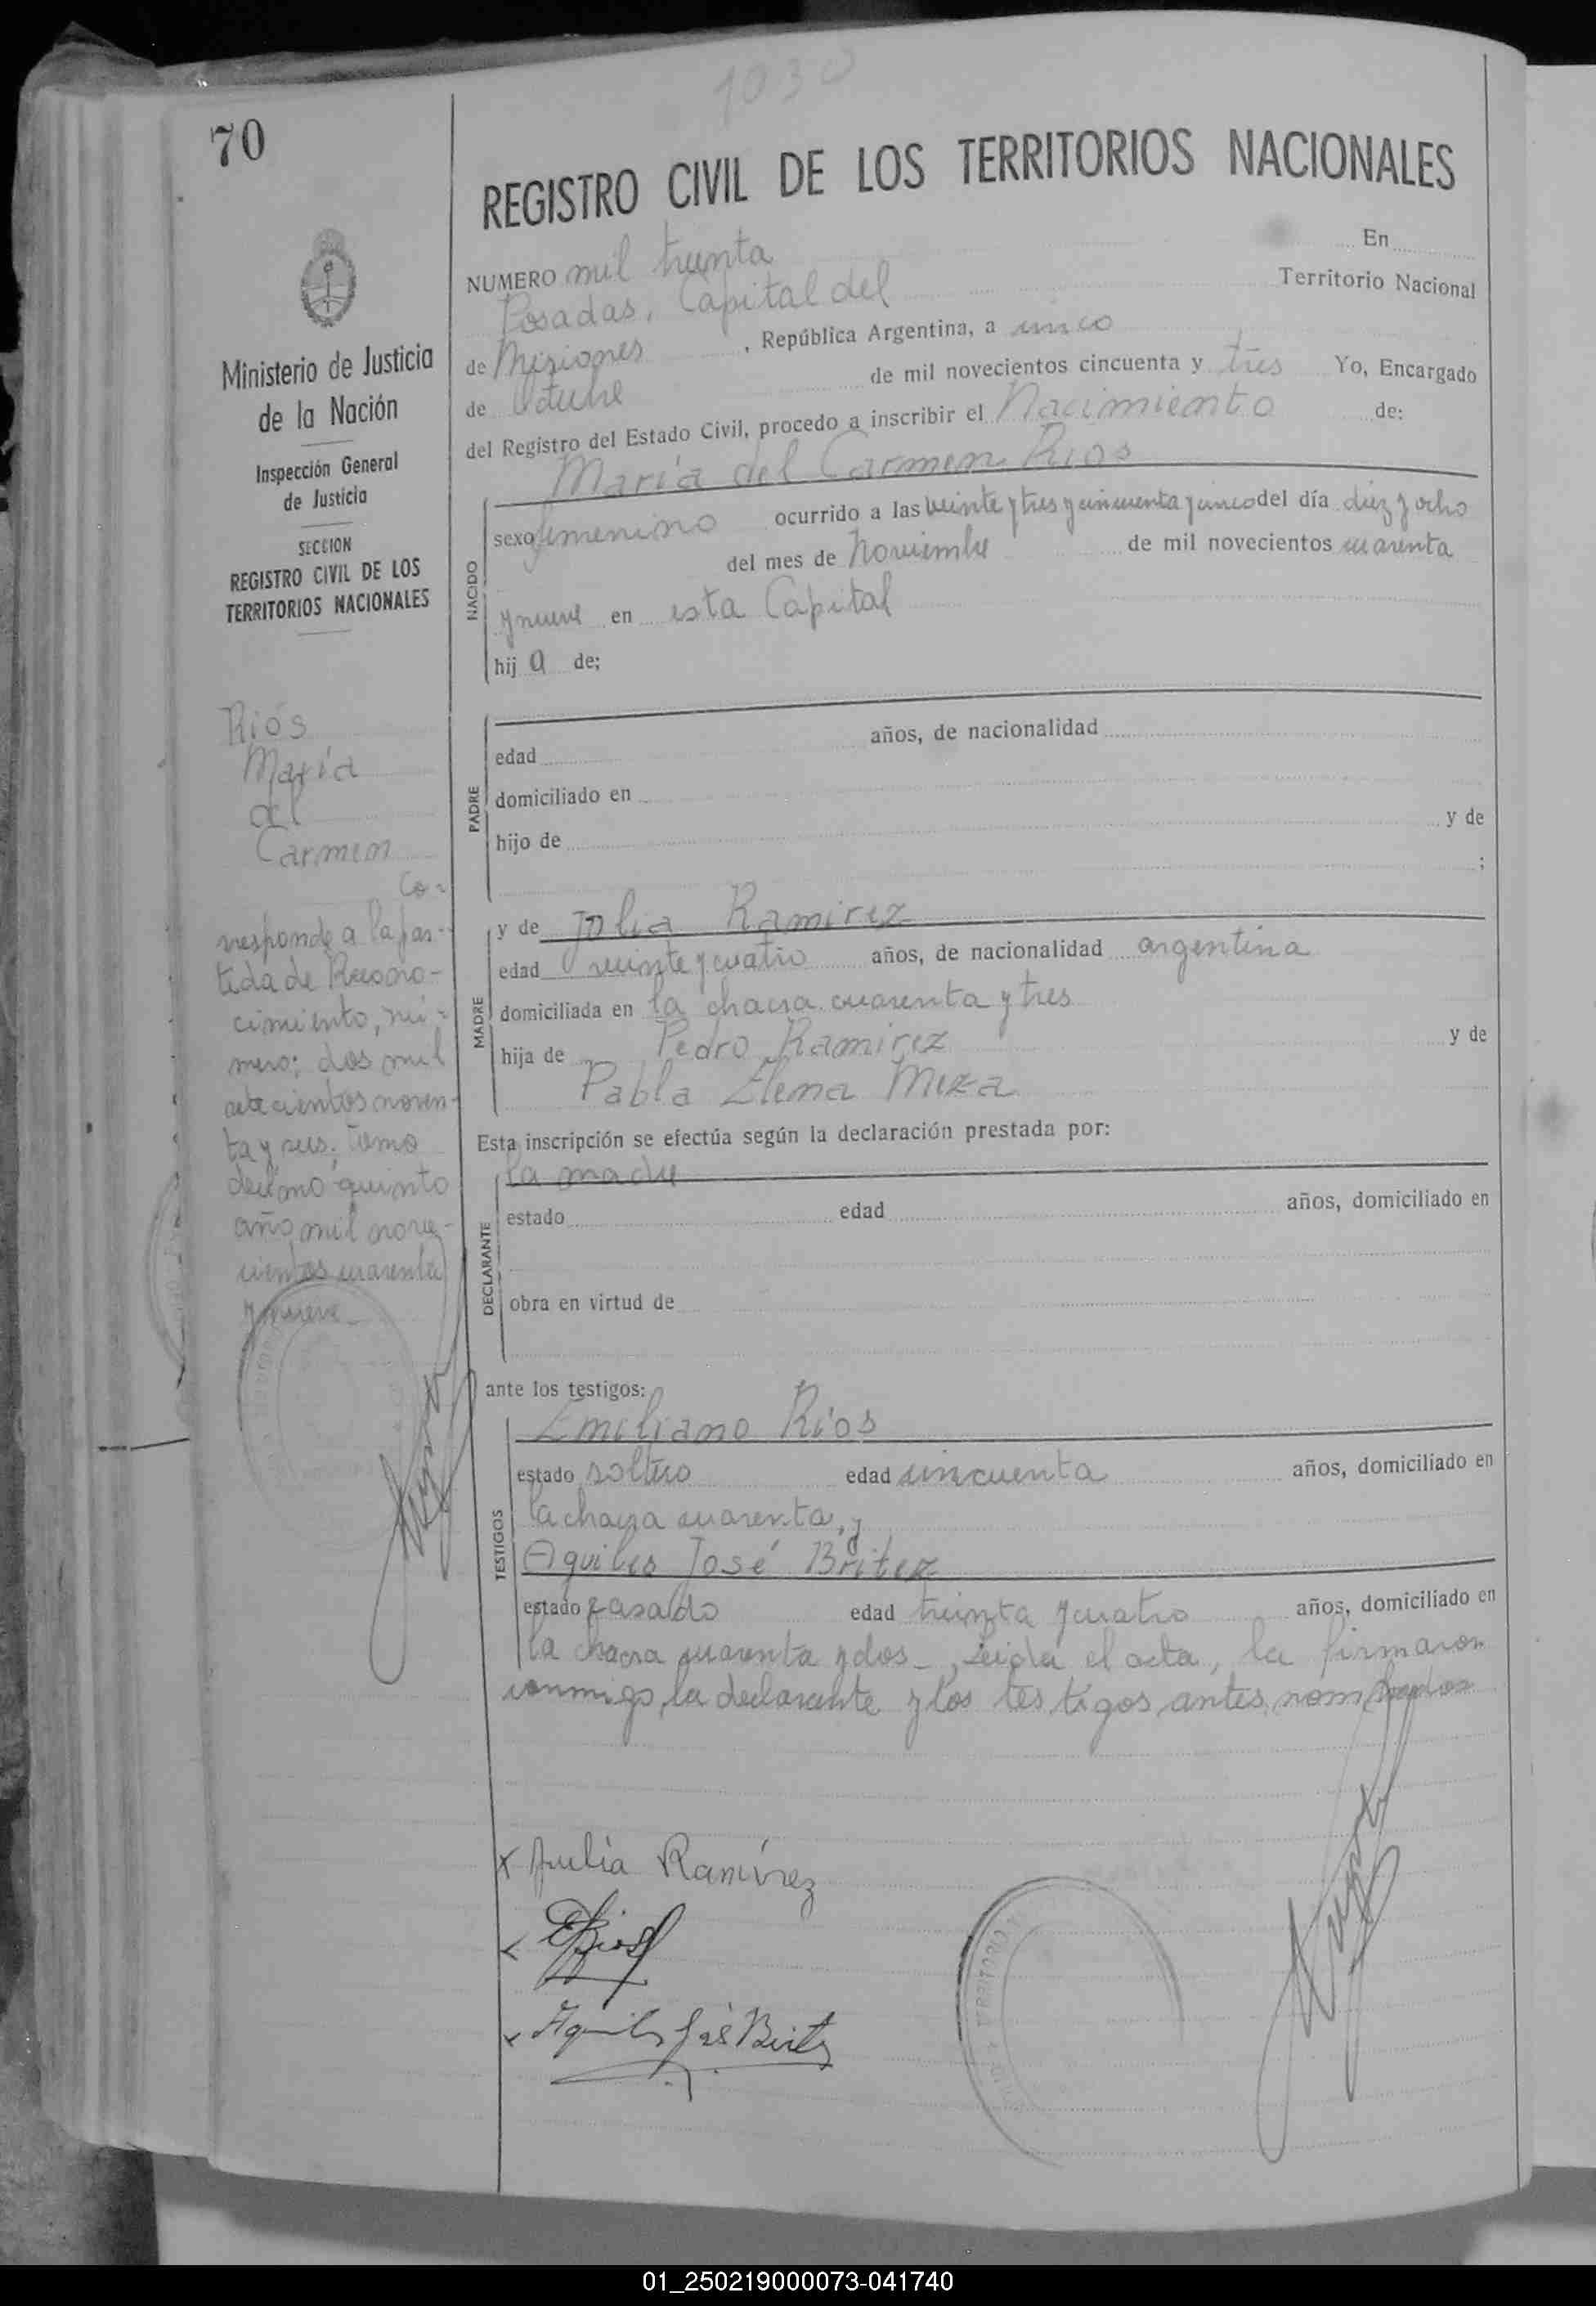 1030
70
REGISTRO CIVIL DE LOS TERRITORIOS NACIONALES
Ministerio de Justicia
de la Nación
Inspección General
de Justicia
SECCION
REGISTRO CIVIL DE LOS
TERRITORIOS NACIONALES
Ríos
María
del
Carmen
Co-
rresponde a la par-
tida de Recono-
cimiento, nú-
mero: dos mil
setecientos noven-
ta y seis; tomo
décimo quinto
año mil nove-
cientos cuarenta
y nueve
NUMERO mil treinta En
Posadas, Capital del Territorio Nacional
de Misiones , República Argentina, a cinco
de Octubre de mil novecientos cincuenta y tres Yo, Encargado
del Registro del Estado Civil, procedo a inscribir el Nacimiento de:
María del Carmen Rios
NACIDO
sexo femenino ocurrido a las veinte y tres y cincuenta y cinco del día diez y ocho
del mes de Noviembre de mil novecientos cuarenta
y nueve en esta Capital
hij a de;
PADRE
edad años, de nacionalidad
domiciliado en
hijo de y de
;
MADRE
y de Julia Ramirez
edad veinte y cuatro años, de nacionalidad argentina
domiciliada en la chacra cuarenta y tres
hija de Pedro Ramirez y de
Pabla Elena Meza
Esta inscripción se efectúa según la declaración prestada por:
DECLARANTE
la madre
estado edad años, domiciliado en
obra en virtud de
ante los testigos:
TESTIGOS
Emiliano Ríos
estado soltero edad cincuenta años, domiciliado en
la chacra cuarenta, y
Aquiles José Britez
estado casado edad treinta y cuatro años, domiciliado en
la chacra cuarenta y dos -, Leida el acta, la firmaron
conmigo, la declarante y los testigos antes nombrados
x Julia Ramírez
ERios
Aquiles José Britez
TERRITORIO
01_250219000073-041740